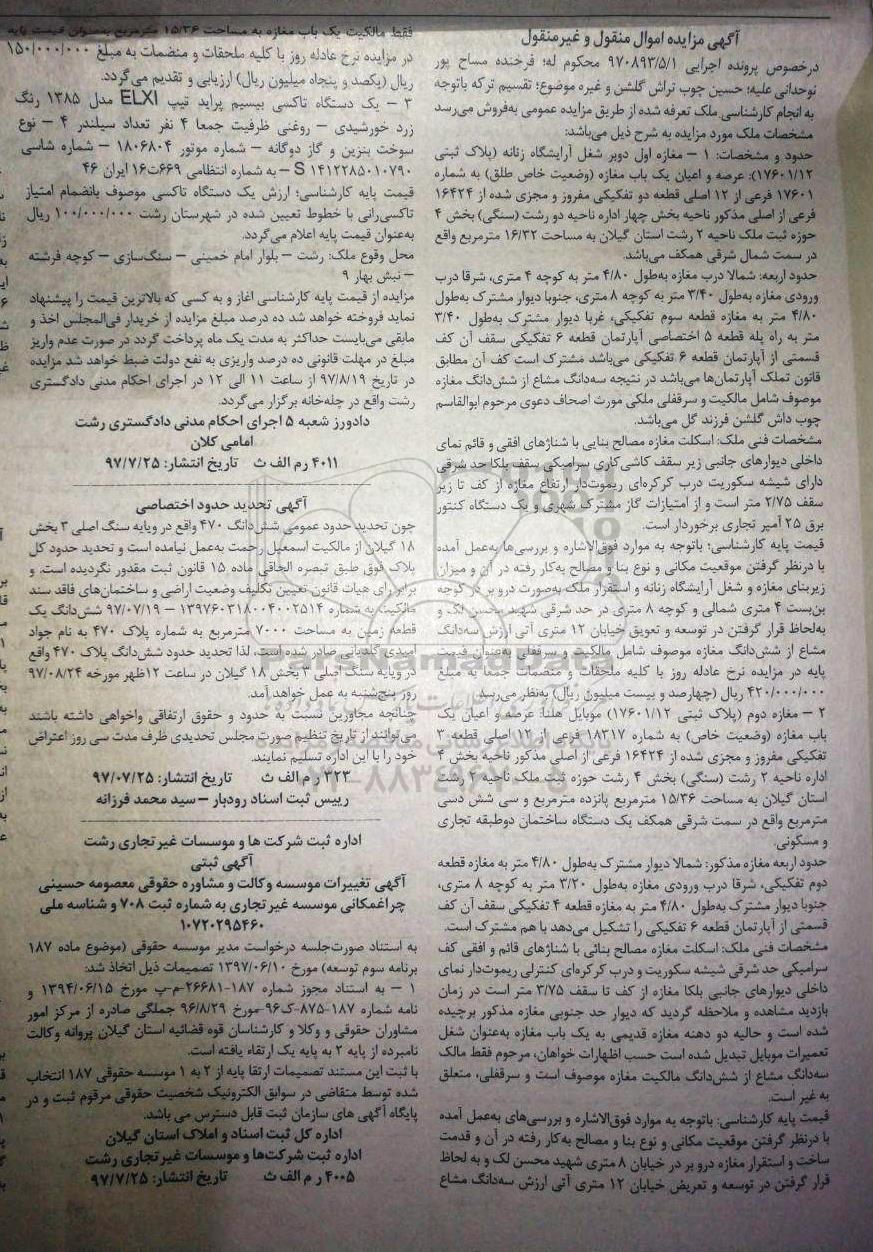 آگهی مزایده اموال منقول و غیرمنقول
درخصوص پرونده اجرایی ۹۷۰۸۹۳/۵/۱ محکوم له؛ فرخنده مساح پور
نوحدانی علیه؛ حسین چوب تراش گلشن و غیره موضوع؛ تقسیم ترکه باتوجه
به انجام کارشناسی ملک تعرفه شده از طریق مزایده عمومی به‌فروش می‌رسد
مشخصات ملک مورد مزایده به شرح ذیل می‌باشد:
حدود و مشخصات: ۱ – مغازه اول دوبر شغل آرایشگاه زنانه (پلاک ثبتی
۱۷۶۰۱/۱۲): عرصه و اعیان یک باب مغازه (وضعیت خاص طلق) به شماره
۱۷۶۰۱ فرعی از ۱۲ اصلی قطعه دو تفکیکی مفروز و مجزی شده از ۱۶۴۲۴
فرعی از اصلی مذکور ناحیه بخش چهار اداره ناحیه دو رشت (سنگی) بخش ۴
حوزه ثبت ملک ناحیه ۲ رشت استان گیلان به مساحت ۱۶/۳۲ مترمربع واقع
در سمت شمال شرقی همکف می‌باشد.
حدود اربعه: شمالا درب مغازه به‌طول ۴/۸۰ متر به کوچه ۴ متری، شرقا درب
ورودی مغازه به‌طول ۳/۴۰ متر به کوچه ۸ متری، جنوبا دیوار مشترک به‌طول
۴/۸۰ متر به مغازه قطعه سوم تفکیکی، غربا دیوار مشترک به‌طول ۳/۴۰
متر به راه پله قطعه ۵ اختصاصی آپارتمان قطعه ۶ تفکیکی سقف آن کف
قسمتی از آپارتمان قطعه ۶ تفکیکی می‌باشد مشترک است کف آن مطابق
قانون تملک آپارتمان‌ها می‌باشد در نتیجه سه‌دانگ مشاع از شش‌دانگ مغازه
موصوف شامل مالکیت و سرقفلی ملکی مورث اصحاف دعوی مرحوم ابوالقاسم
چوب داش گلشن فرزند گل می‌باشد.
مشخصات فنی ملک: اسکلت مغازه مصالح بنایی با شناژهای افقی و قائم نمای
داخلی دیوارهای جانبی زیر سقف کاشی‌کاری سرامیکی سقف بلکا حد شرقی
دارای شیشه سکوریت درب کرکره‌ای ریموت‌دار ارتفاع مغازه از کف تا زیر
سقف ۲/۷۵ متر است و از امتیازات گاز مشترک شهری و یک دستگاه کنتور
برق ۲۵ آمپر تجاری برخوردار است.
قیمت پایه کارشناسی؛ باتوجه به موارد فوق‌الاشاره و بررسی‌ها به‌عمل آمده
با درنظر گرفتن موقعیت مکانی و نوع بنا و مصالح به‌کار رفته در آن و میزان
زیربنای مغازه و شغل آرایشگاه زنانه و استقرار ملک به‌صورت درو بر در کوچه
بن‌بست ۴ متری شمالی و کوچه ۸ متری در حد شرقی شهید محسن لک و
به‌لحاظ قرار گرفتن در توسعه و تعویق خیابان ۱۲ متری آتی ارزش سه‌دانگ
مشاع از شش‌دانگ مغازه موصوف شامل مالکیت و سرقفلی به‌عنوان قیمت
پایه در مزایده نرخ عادله روز با کلیه ملحقات و منضمات جمعا به مبلغ
۴۲۰/۰۰۰/۰۰۰ ریال (چهارصد و بیست میلیون ریال) به‌نظر می‌رسد.
۲ – مغازه دوم (پلاک ثبتی ۱۷۶۰۱/۱۲) موبایل هلنا: عرصه و اعیان یک
باب مغازه (وضعیت خاص) به شماره ۱۸۲۱۷ فرعی از ۱۲ اصلی قطعه ۳
تفکیکی مفروز و مجزی شده از ۱۶۴۲۴ فرعی از اصلی مذکور ناحیه بخش ۴
اداره ناحیه ۲ رشت (سنگی) بخش ۴ رشت حوزه ثبت ملک ناحیه ۲ رشت
استان گیلان به مساحت ۱۵/۳۶ مترمربع پانزده مترمربع و سی شش دسی
مترمربع واقع در سمت شرقی همکف یک دستگاه ساختمان دوطبقه تجاری
و مسکونی.
حدود اربعه مغازه مذکور: شمالا دیوار مشترک به‌طول ۴/۸۰ متر به مغازه قطعه
دوم تفکیکی، شرقا درب ورودی مغازه به‌طول ۳/۲۰ متر به کوچه ۸ متری،
جنوبا دیوار مشترک به‌طول ۴/۸۰ متر به مغازه قطعه ۴ تفکیکی سقف آن کف
قسمتی از آپارتمان قطعه ۶ تفکیکی را تشکیل می‌دهد با هم مشترک است.
مشخصات فنی ملک: اسکلت مغازه مصالح بنائی با شناژهای قائم و افقی کف
سرامیکی حد شرقی شیشه سکوریت و درب کرکره‌ای کنترلی ریموت‌دار نمای
داخلی دیوارهای جانبی بلکا مغازه از کف تا سقف ۳/۷۵ متر است در زمان
بازدید مشاهده و ملاحظه گردید که دیوار حد جنوبی مغازه مذکور برچیده
شده است و حالیه دو دهنه مغازه قدیمی به یک باب مغازه به‌عنوان شغل
تعمیرات موبایل تبدیل شده است حسب اظهارات خواهان، مرحوم فقط مالک
سه‌دانگ مشاع از شش‌دانگ مالکیت مغازه موصوف است و سرقفلی، متعلق
به غیر است.
قیمت پایه کارشناسی: باتوجه به موارد فوق‌الاشاره و بررسی‌های به‌عمل آمده
با درنظر گرفتن موقعیت مکانی و نوع بنا و مصالح به‌کار رفته در آن و قدمت
ساخت و استقرار مغازه درو بر در خیابان ۸ متری شهید محسن لک و به لحاظ
قرار گرفتن در توسعه و تعریض خیابان ۱۲ متری آتی ارزش سه‌دانگ مشاع
فقط مالکیت یک باب مغازه به مساحت ۱۵/۳۶ مترمربع به‌عنوان قیمت پایه
در مزایده نرخ عادله روز با کلیه ملحقات و منضمات به مبلغ ۱۵۰/۰۰۰/۰۰۰
ریال (یکصد و پنجاه میلیون ریال) ارزیابی و تقدیم می‌گردد.
۳ – یک دستگاه تاکسی بیسیم پراید تیپ ELXI مدل ۱۳۸۵ رنگ
زرد خورشیدی – روغنی ظرفیت جمعا ۴ نفر تعداد سیلندر ۴ – نوع
سوخت بنزین و گاز دوگانه – شماره موتور ۱۸۰۶۸۰۴ – شماره شاسی
S ۱۴۱۲۲۸۵۰۱۰۷۹۰ – به شماره انتظامی ۶۶۹ت۱۶ ایران ۴۶
قیمت پایه کارشناسی؛ ارزش یک دستگاه تاکسی موصوف بانضمام امتیاز
تاکسی‌رانی با خطوط تعیین شده در شهرستان رشت ۱۰۰/۰۰۰/۰۰۰ ریال
به‌عنوان قیمت پایه اعلام می‌گردد.
محل وقوع ملک: رشت – بلوار امام خمینی – سنگ‌سازی – کوچه فرشته
– نبش بهار ۹
مزایده از قیمت پایه کارشناسی آغاز و به کسی که بالاترین قیمت را پیشنهاد
نماید فروخته خواهد شد ده درصد مبلغ مزایده از خریدار فی‌المجلس اخذ و
مابقی می‌بایست حداکثر به مدت یک ماه پرداخت گردد در صورت عدم واریز
مبلغ در مهلت قانونی ده درصد واریزی به نفع دولت ضبط خواهد شد مزایده
در تاریخ ۹۷/۸/۱۹ از ساعت ۱۱ الی ۱۲ در اجرای احکام مدنی دادگستری
رشت واقع در چله‌خانه برگزار می‌گردد.
دادورز شعبه ۵ اجرای احکام مدنی دادگستری رشت
امامی کلان
۴۰۱۱ رم الف ث تاریخ انتشار: ۹۷/۷/۲۵
آگهی تحدید حدود اختصاصی
چون تحدید حدود عمومی شش‌دانگ ۴۷۰ واقع در ویایه سنگ اصلی ۳ بخش
۱۸ گیلان از مالکیت اسمعیل رحمت به‌عمل نیامده است و تحدید حدود کل
پلاک فوق طبق تبصره الحاقی ماده ۱۵ قانون ثبت مقدور نگردیده است. و
برابر رای هیات قانون تعیین تکلیف وضعیت اراضی و ساختمان‌های فاقد سند
مالکیت به شماره ۱۳۹۷۶۰۳۱۸۰۰۴۰۰۲۵۱۴ – ۹۷/۰۷/۱۹ شش‌دانگ یک
قطعه زمین به مساحت ۷۰۰۰ مترمربع به شماره پلاک ۴۷۰ به نام جواد
امیدی گلدیانی صادر شده است. لذا تحدید حدود شش‌دانگ پلاک ۴۷۰ واقع
در ویایه سنگ اصلی ۳ بخش ۱۸ گیلان در ساعت ۱۲ظهر مورخه ۹۷/۰۸/۲۴
روز پنج‌شنبه به عمل خواهد آمد.
چنانچه مجاورین نسبت به حدود و حقوق ارتفاقی واخواهی داشته باشند
می‌توانند از تاریخ تنظیم صورت مجلس تحدیدی ظرف مدت سی روز اعتراض
خود را با این اداره تسلیم نمایند.
۳۲۳ ر م الف ث تاریخ انتشار: ۹۷/۰۷/۲۵
رییس ثبت اسناد رودبار – سید محمد فرزانه
اداره ثبت شرکت ها و موسسات غیرتجاری رشت
آگهی ثبتی
آگهی تغییرات موسسه وکالت و مشاوره حقوقی معصومه حسینی
چراغمکانی موسسه غیرتجاری به شماره ثبت ۷۰۸ و شناسه ملی
۱۰۷۲۰۲۹۵۴۶۰
به استناد صورت‌جلسه درخواست مدیر موسسه حقوقی (موضوع ماده ۱۸۷
برنامه سوم توسعه) مورخ ۱۳۹۷/۰۶/۱۰ تصمیمات ذیل اتخاذ شد:
۱ – به استناد مجوز شماره ۱۸۷-۲۶۶۸۱-م-پ مورخ ۱۳۹۴/۰۶/۱۵ و
نامه شماره ۱۸۷-۸۷۵-ک۹۶-مورخ ۹۶/۸/۲۹ جملگی صادره از مرکز امور
مشاوران حقوقی و وکلا و کارشناسان قوه قضائیه استان گیلان پروانه وکالت
نامبرده از پایه ۲ به پایه یک ارتقاء یافته است.
با ثبت این مستند تصمیمات ارتقا پایه از ۲ به ۱ موسسه حقوقی ۱۸۷ انتخاب
شده توسط متقاضی در سوابق الکترونیک شخصیت حقوقی مرقوم ثبت و در
پایگاه آگهی های سازمان ثبت قابل دسترس می باشد.
اداره کل ثبت اسناد و املاک استان گیلان
اداره ثبت شرکت‌ها و موسسات غیرتجاری رشت
۴۰۰۵ ر م الف ث تاریخ انتشار: ۹۷/۷/۲۵
ParsNamadData